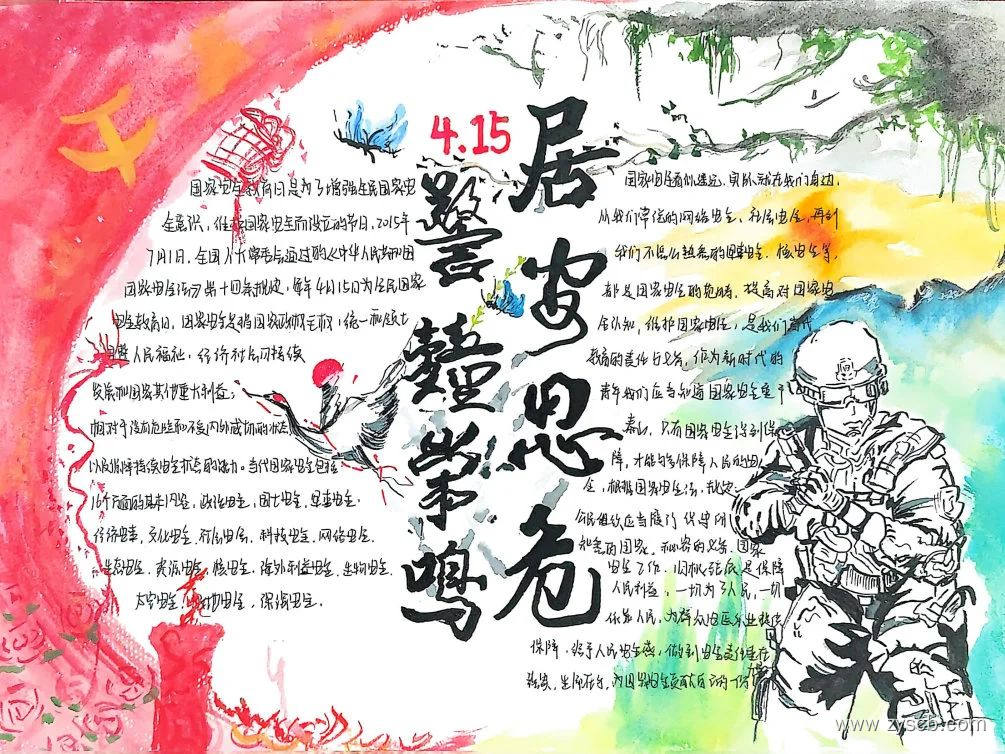 4.15
居安思危
警钟常鸣
国家安全教育日是为了增强全民国家安
全意识，维护国家安全而设立的节日，2015年
7月1日，全国人大常委会通过的《中华人民共和国
国家安全法》第十四条规定，每年4月15日为全民国家
安全教育日，国家安全是指国家政权主权，统一和领土
人民福祉，经济社会可持续
发展和国家其他重大利益；
相对于没有危险和不受内外威胁的状态
以及保障持续安全状态的能力。当代国家安全包括
16个方面的基本内容，政治安全，国土安全，军事安全，
经济安全，文化安全，社会安全，科技安全，网络安全，
生态安全，资源安全，核安全，海外利益安全，生物安全，
太空安全，极地安全，深海安全。
国家安全看似遥远，实际就在我们身边，
从我们常信的网络安全，社会安全，再到
我们不怎么熟悉的国事安全，核安全等，
都是国家安全的范畴，提高对国家安
全认知，维护国家安全，是我们当代
教育的责任与义务，作为新时代的
青年我们应当知道国家安全重于
泰山，只有国家安全得到保
障，才能够保障人民的安
全，根据国家安全法，规定
组织应当履行保守所
知悉的国家，秘密的义务，国家
安全工作，归根结底是保障
人民利益，一切为了人民，一切
依靠人民，为群众安居乐业提供
保障，给予人民安全感，做到安全责任重在
落实，生命在于，为国家安全贡献自己的一份
www.zyscb.com